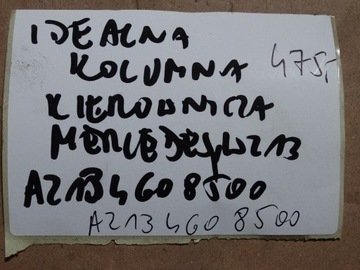 IDEALNA
KOLUMNA 475,-
KIEROWNICZA
MERCEDES W213
A2134608500
A2134608500